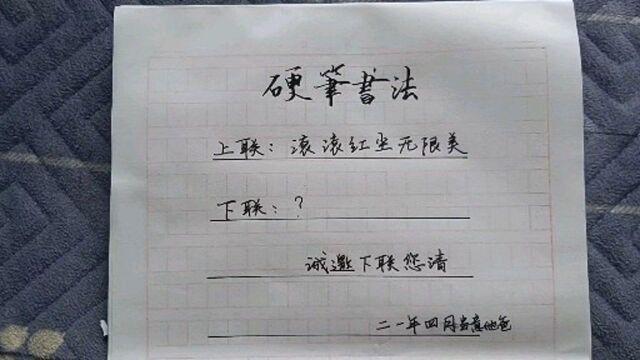 硬筆書法
上联：滚滚红尘无限美
下联：？
诚邀下联您请
二一年四月